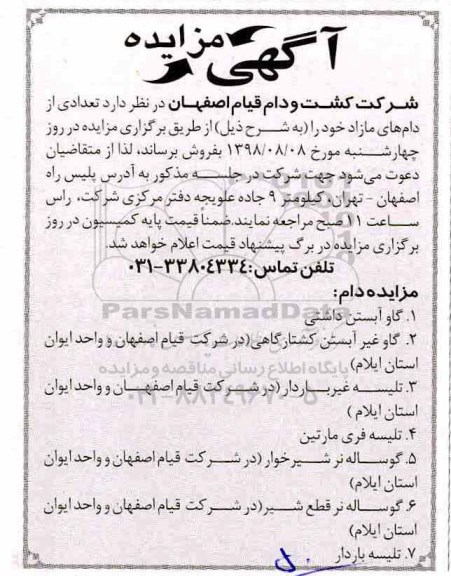 آگهی مزایده
شرکت کشت و دام قیام اصفهان در نظر دارد تعدادی از
دام‌های مازاد خود را (به شرح ذیل) از طریق برگزاری مزایده در روز
چهارشنبه مورخ ۱۳۹۸/۰۸/۰۸ بفروش برساند، لذا از متقاضیان
دعوت می‌شود جهت شرکت در جلسه مذکور به آدرس پلیس راه
اصفهان - تهران، کیلومتر ۹ جاده علویجه دفتر مرکزی شرکت، راس
ساعت ۱۱ صبح مراجعه نمایند. ضمناً قیمت پایه کمیسیون در روز
برگزاری مزایده در برگ پیشنهاد قیمت اعلام خواهد شد.
تلفن تماس: ۳۳۸۰۴۳۳۴-۰۳۱
مزایده دام:
ParsNamadData
۱. گاو آبستن داشتی
۲. گاو غیر آبستن کشتارگاهی (در شرکت قیام اصفهان و واحد ایوان
استان ایلام)
پایگاه اطلاع رسانی مناقصه و مزایده
۳. تلیسه غیرباردار (در شرکت قیام اصفهان و واحد ایوان
استان ایلام )
۴. تلیسه فری مارتین
۵. گوساله نر شیرخوار (در شرکت قیام اصفهان و واحد ایوان
استان ایلام)
۶. گوساله نر قطع شیر (در شرکت قیام اصفهان و واحد ایوان
استان ایلام)
۷. تلیسه باردار